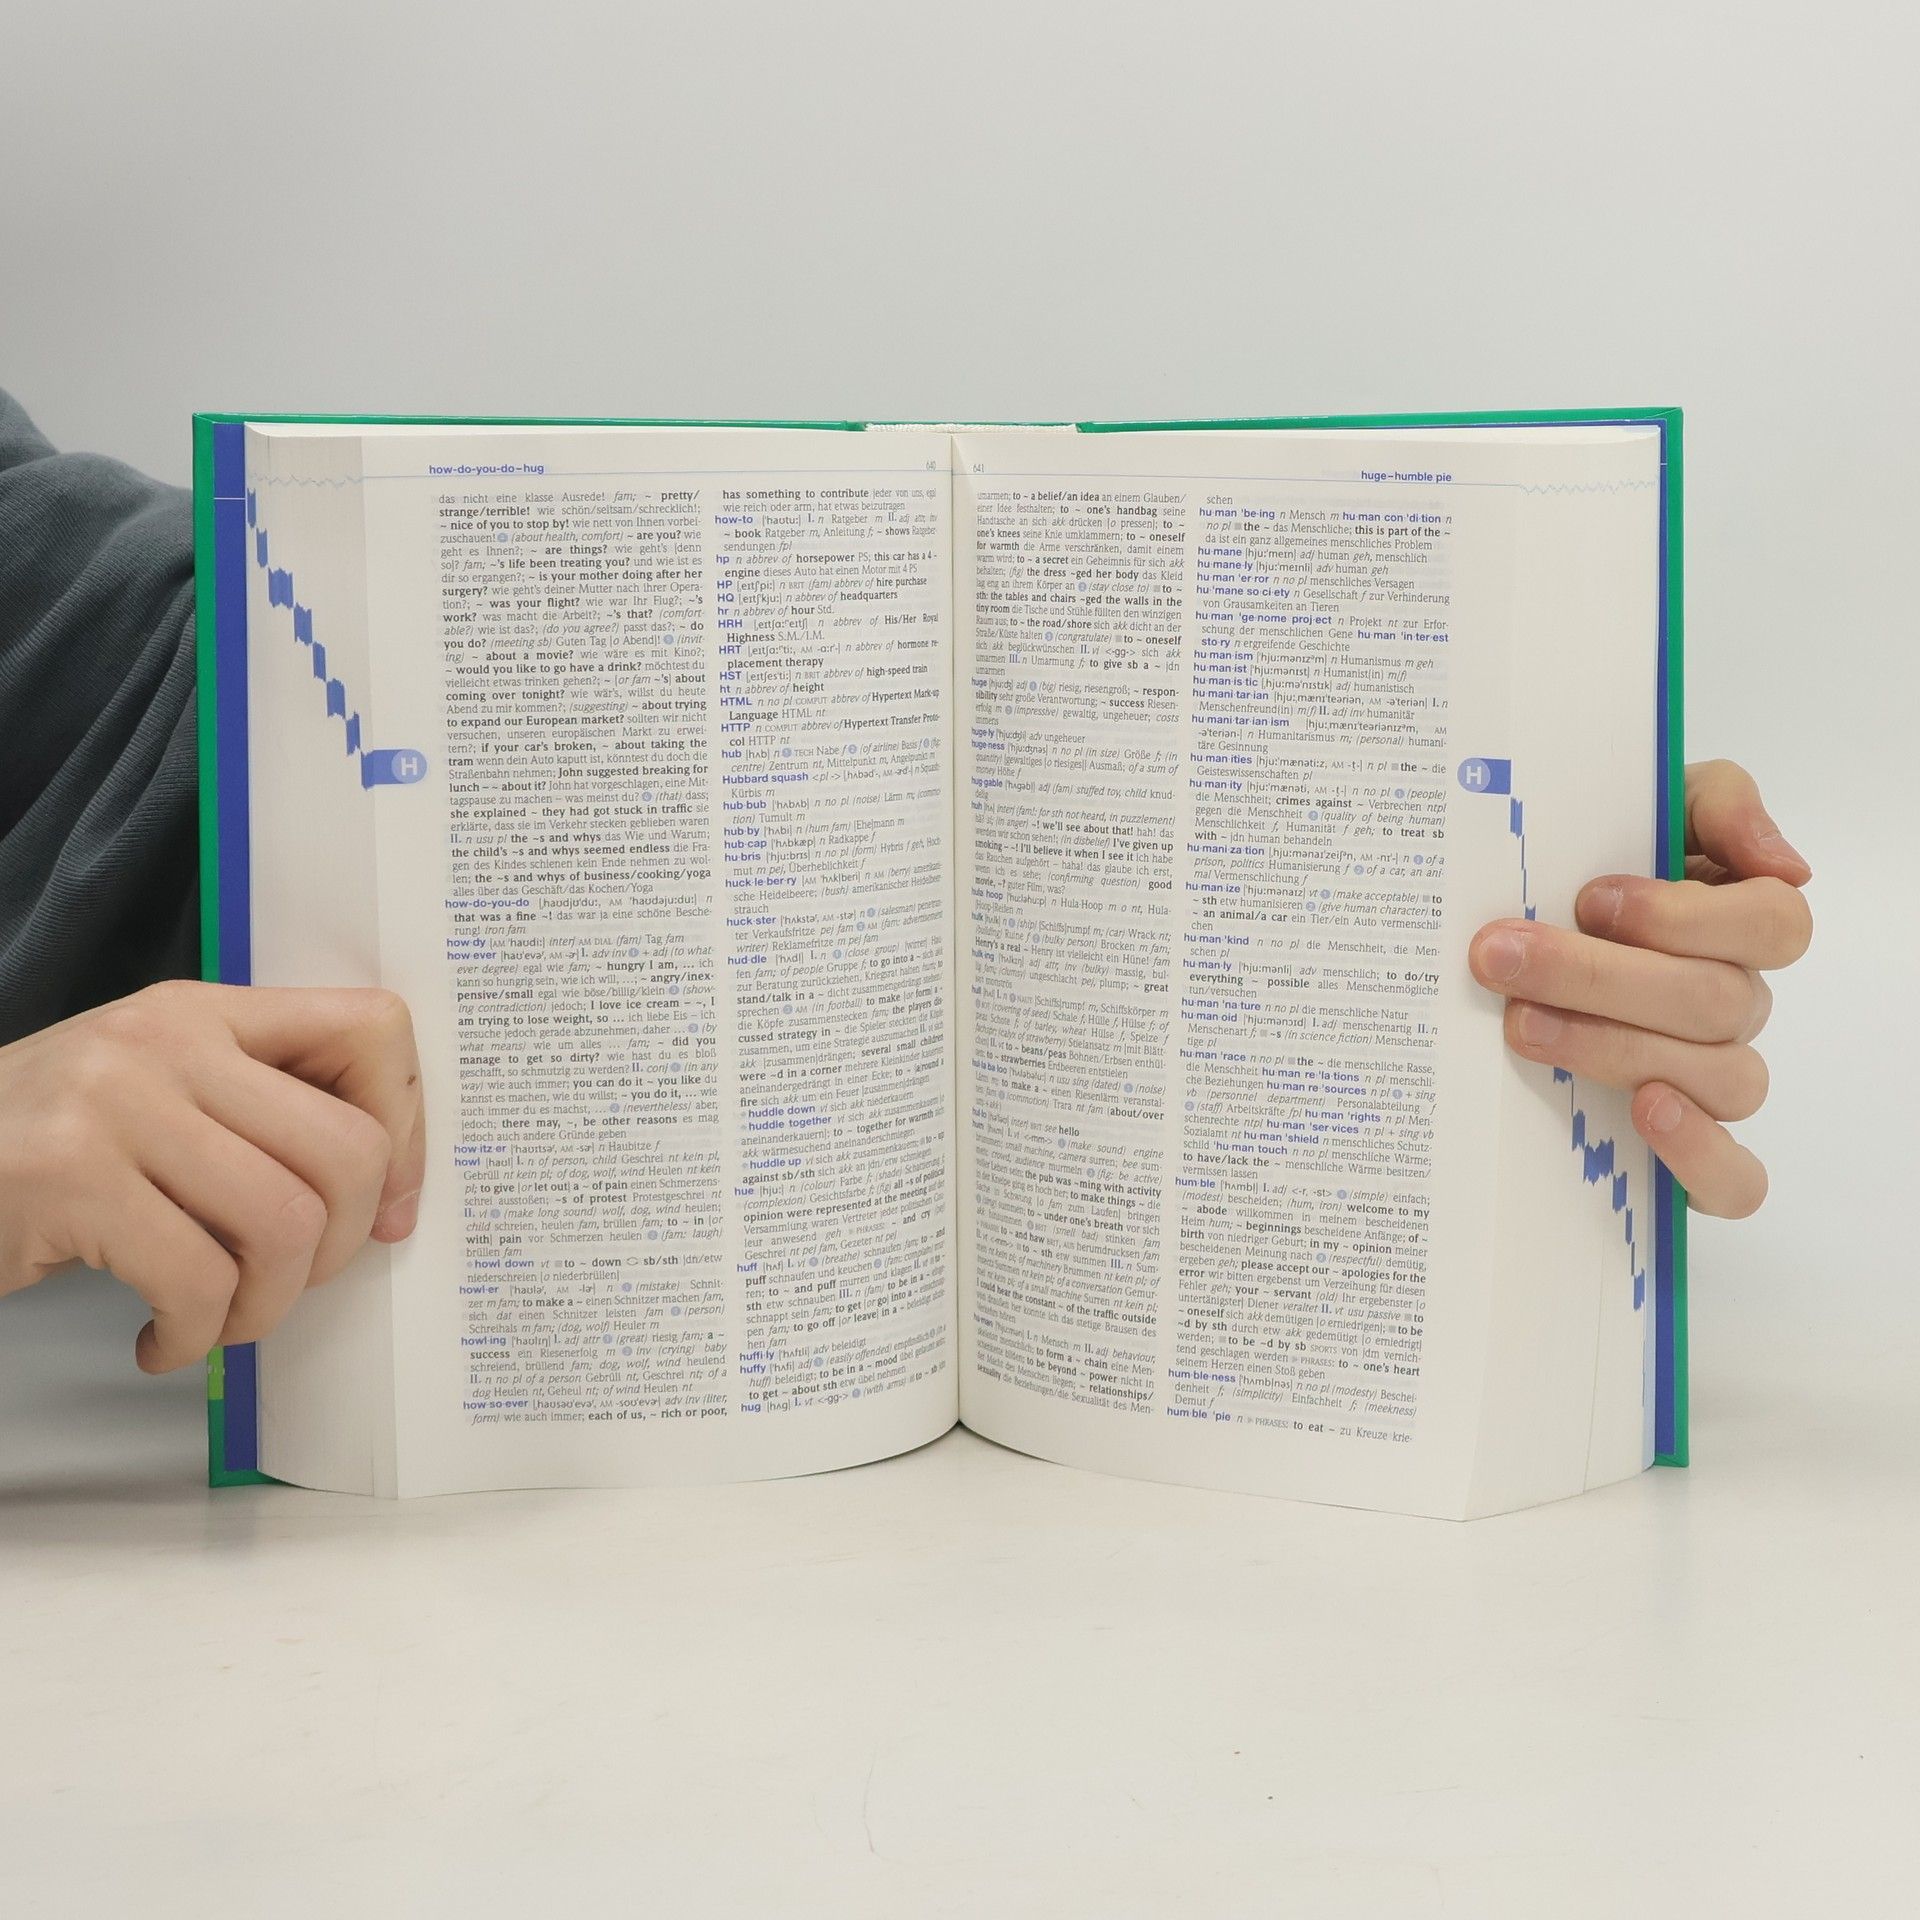 how-do-you-do–hug
640
das nicht eine klasse Ausrede! fam; ~ pretty/
strange/terrible! wie schön/seltsam/schrecklich!;
~ nice of you to stop by! wie nett von Ihnen vorbei-
zuschauen! (about health, comfort) ~ are you? wie
geht es Ihnen?; ~ are things? wie geht's [denn
so]? fam; ~'s life been treating you? und wie ist es
dir so ergangen?; ~ is your mother doing after her
surgery? wie geht's deiner Mutter nach ihrer Opera-
tion?; ~ was your flight? wie war Ihr Flug?; ~'s
work? was macht die Arbeit?; ~'s that? (comfort-
able?) wie ist das?; (do you agree?) passt das?; ~ do
you do? (meeting sb) Guten Tag [o Abend]! (invit-
ing) ~ about a movie? wie wäre es mit Kino?;
~ would you like to go have a drink? möchtest du
vielleicht etwas trinken gehen?; ~ [or fam ~'s] about
coming over tonight? wie wär's, willst du heute
Abend zu mir kommen?; (suggesting) ~ about trying
to expand our European market? sollten wir nicht
versuchen, unseren europäischen Markt zu erwei-
tern?; if your car's broken, ~ about taking the
tram wenn dein Auto kaputt ist, könntest du doch die
Straßenbahn nehmen; John suggested breaking for
lunch – ~ about it? John hat vorgeschlagen, eine Mit-
tagspause zu machen – was meinst du? (that) dass;
she explained ~ they had got stuck in traffic sie
erklärte, dass sie im Verkehr stecken geblieben waren
II. n usu pl the ~s and whys das Wie und Warum;
the child's ~s and whys seemed endless die Fra-
gen des Kindes schienen kein Ende nehmen zu wol-
len; the ~s and whys of business/cooking/yoga
alles über das Geschäft/das Kochen/Yoga
how-do-you-do [ˌhaʊdjʊˈduː, AM ˈhaʊdəjuːduː] n
that was a fine ~! das war ja eine schöne Besche-
rung! iron fam
how·dy [AM ˈhaʊdi:] interj AM DIAL (fam) Tag fam
how·ever [haʊˈevəʳ, AM -ɚ] I. adv inv + adj (to what-
ever degree) egal wie fam; ~ hungry I am, ... ich
kann so hungrig sein, wie ich will, ...; ~ angry/inex-
pensive/small egal wie böse/billig/klein (show-
ing contradiction) jedoch; I love ice cream – ~, I
am trying to lose weight, so ... ich liebe Eis – ich
versuche jedoch gerade abzunehmen, daher ... (by
what means) wie um alles ... fam; ~ did you
manage to get so dirty? wie hast du es bloß
geschafft, so schmutzig zu werden? II. conj (in any
way) wie auch immer; you can do it ~ you like du
kannst es machen, wie du willst; ~ you do it, ... wie
auch immer du es machst, ... (nevertheless) aber,
jedoch; there may, ~, be other reasons es mag
jedoch auch andere Gründe geben
how·itz·er [ˈhaʊɪtsəʳ, AM -sɚ] n Haubitze f
howl [haʊl] I. n of person, child Geschrei nt kein pl,
Gebrüll nt kein pl; of dog, wolf, wind Heulen nt kein
pl; to give [or let out] a ~ of pain einen Schmerzens-
schrei ausstoßen; ~s of protest Protestgeschrei nt
II. vi (make long sound) wolf, dog, wind heulen;
child schreien, heulen fam, brüllen fam; to ~ in [or
with] pain vor Schmerzen heulen (fam: laugh)
brüllen fam
howl down vt to ~ down sb/sth jdn/etw
niederschreien [o niederbrüllen]
howl·er [ˈhaʊləʳ, AM -lɚ] n (mistake) Schnit-
zer m fam; to make a ~ einen Schnitzer machen fam,
sich dat einen Schnitzer leisten fam (person)
Schreihals m fam; (dog, wolf) Heuler m
howl·ing [ˈhaʊlɪŋ] I. adj attr (great) riesig fam; a ~
success ein Riesenerfolg m inv (crying) baby
schreiend, brüllend fam; dog, wolf, wind heulend
II. n no pl of a person Gebrüll nt, Geschrei nt; of a
dog Heulen nt, Geheul nt; of wind Heulen nt
how·so·ever [ˌhaʊsəʊˈevəʳ, AM -soʊˈevɚ] adv inv (liter,
form) wie auch immer; each of us, ~ rich or poor,
has something to contribute jeder von uns, egal
wie reich oder arm, hat etwas beizutragen
how-to [ˈhaʊtuː] I. n Ratgeber m II. adj attr, inv
~ book Ratgeber m, Anleitung f; ~ shows Ratgeber-
sendungen fpl
hp n abbrev of horsepower PS; this car has a 4 -
engine dieses Auto hat einen Motor mit 4 PS
HP [ˌeɪtʃˈpiː] n BRIT (fam) abbrev of hire purchase
HQ [ˌeɪtʃˈkjuː] n abbrev of headquarters
hr n abbrev of hour Std.
HRH [ˌeɪtʃɑːˈreɪtʃ] n abbrev of His/Her Royal
Highness S.M./I.M.
HRT [ˌeɪtʃɑːˈtiː, AM -ɑːrˈ-] n abbrev of hormone re-
placement therapy
HST [ˌeɪtʃesˈtiː] n BRIT abbrev of high-speed train
ht n abbrev of height
HTML n no pl COMPUT abbrev of Hypertext Mark-up
Language HTML nt
HTTP n COMPUT abbrev of Hypertext Transfer Proto-
col HTTP nt
hub [hʌb] n TECH Nabe f (of airline) Basis f (fig:
centre) Zentrum nt, Mittelpunkt m, Angelpunkt m
Hubbard squash <pl -> [ˈhʌbəd-, AM -ɚd-] n Squash-
Kürbis m
hub·bub [ˈhʌbʌb] n no pl (noise) Lärm m; (commo-
tion) Tumult m
hub·by [ˈhʌbi] n (hum fam) [Ehe]mann m
hub·cap [ˈhʌbkæp] n Radkappe f
hu·bris [ˈhjuːbrɪs] n no pl (form) Hybris f geh, Hoch-
mut m pej, Überheblichkeit f
huck·le·ber·ry [AM ˈhʌklˌberi] n AM (berry) amerikani-
sche Heidelbeere; (bush) amerikanischer Heidelbeer-
strauch
huck·ster [ˈhʌkstəʳ, AM -stɚ] n (salesman) penetran-
ter Verkaufsfritze pej fam AM (fam: advertisement
writer) Reklamefritze m pej fam
hud·dle [ˈhʌdl] I. n (close group) [wirrer] Hau-
fen fam; of people Gruppe f; to go into a ~ sich akk
zur Beratung zurückziehen, Kriegsrat halten hum; to
stand/talk in a ~ dicht zusammengedrängt stehen/
sprechen AM (in football) to make [or form] a ~
die Köpfe zusammenstecken fam; the players dis-
cussed strategy in ~ die Spieler steckten die Köpfe
zusammen, um eine Strategie auszumachen II. vi sich
akk [zusammen]drängen; several small children
were ~d in a corner mehrere Kleinkinder kauerten
aneinandergedrängt in einer Ecke; to ~ [a]round a
fire sich akk um ein Feuer [zusammen]drängen
huddle down vi sich akk niederkauern
huddle together vi sich akk zusammenkauern [o
aneinanderkauern]; to ~ together for warmth sich
akk wärmesuchend aneinanderschmiegen
huddle up vi sich akk zusammenkauern; to ~ up
against sb/sth sich akk an jdn/etw schmiegen
hue [hjuː] n (colour) Farbe f; (shade) Schattierung f;
(complexion) Gesichtsfarbe f; (fig) all ~s of political
opinion were represented at the meeting auf der
Versammlung waren Vertreter jeder politischen Cou-
leur anwesend geh PHRASES: ~ and cry [bei]
Geschrei nt pej fam, Gezeter nt pej
huff [hʌf] I. vi (breathe) schnaufen fam; to ~ and
puff schnaufen und keuchen (fam: complain) mur-
ren; to ~ and puff murren und klagen II. vt to ~
sth etw schnauben III. n (fam) to be in a ~ einge-
schnappt sein fam; to get [or go] into a ~ einschnap-
pen fam; to go off [or leave] in a ~ beleidigt abzie-
hen fam
huffi·ly [ˈhʌfɪli] adv beleidigt
huffy [ˈhʌfi] adj (easily offended) empfindlich (in a
huff) beleidigt; to be in a ~ mood übel gelaunt sein;
to get ~ about sth etw übel nehmen
hug [hʌg] I. vt <-gg-> (with arms) to ~ sb jdn
H
641
huge–humble pie
umarmen; to ~ a belief/an idea an einem Glauben/
einer Idee festhalten; to ~ one's handbag seine
Handtasche an sich akk drücken [o pressen]; to ~
one's knees seine Knie umklammern; to ~ oneself
for warmth die Arme verschränken, damit einem
warm wird; to ~ a secret ein Geheimnis für sich akk
behalten; (fig) the dress ~ged her body das Kleid
lag eng an ihrem Körper an (stay close to) to ~
sth: the tables and chairs ~ged the walls in the
tiny room die Tische und Stühle füllten den winzigen
Raum aus; to ~ the road/shore sich akk dicht an der
Straße/Küste halten (congratulate) to ~ oneself
sich akk beglückwünschen II. vi <-gg-> sich akk
umarmen III. n Umarmung f; to give sb a ~ jdn
umarmen
huge [hjuːdʒ] adj (big) riesig, riesengroß; ~ respon-
sibility sehr große Verantwortung; ~ success Riesen-
erfolg m (impressive) gewaltig, ungeheuer; costs
immens
huge·ly [ˈhjuːdʒli] adv ungeheuer
huge·ness [ˈhjuːdʒnəs] n no pl (in size) Größe f; (in
quantity) [gewaltiges [o riesiges]] Ausmaß; of a sum of
money Höhe f
hug·gable [ˈhʌgəbl] adj (fam) stuffed toy, child knud-
delig
huh [hʌ] interj (fam!: for sth not heard, in puzzlement)
hä? sl; (in anger) ~! we'll see about that! hah! das
werden wir schon sehen!; (in disbelief) I've given up
smoking – ~! I'll believe it when I see it ich habe
das Rauchen aufgehört – haha! das glaube ich erst,
wenn ich es sehe; (confirming question) good
movie, ~? guter Film, was?
hula hoop [ˈhuːləhuːp] n Hula-Hoop m o nt, Hula-
[Hoop-]Reifen m
hulk [hʌlk] n (ship) [Schiffs]rumpf m; (car) Wrack nt;
(building) Ruine f (bulky person) Brocken m fam;
Henry's a real ~ Henry ist vielleicht ein Hüne! fam
hulk·ing [ˈhʌlkɪŋ] adj attr, inv (bulky) massig, bul-
lig fam; (clumsy) ungeschlacht pej, plump; ~ great
monströs
hull [hʌl] I. n NAUT [Schiffs]rumpf m, Schiffskörper m
BOT (covering of seed) Schale f, Hülle f, Hülse f; of
peas Schote f; of barley, wheat Hülse f, Spelze f
fachspr; (calyx of strawberry) Stielansatz m [mit Blätt-
chen] II. vt to ~ beans/peas Bohnen/Erbsen enthül-
sen; to ~ strawberries Erdbeeren entstielen
hul·la·ba·loo [ˌhʌləbəˈluː] n usu sing (dated) (noise)
Lärm m; to make a ~ einen Riesenlärm veranstal-
ten fam (commotion) Trara nt fam (about/over
um + akk)
hul·lo [həˈləʊ] interj BRIT see hello
hum [hʌm] I. vi <-mm-> (make sound) engine
brummen; small machine, camera surren; bee sum-
men; crowd, audience murmeln (fig: be active)
voller Leben sein; the pub was ~ming with activity
in der Kneipe ging es hoch her; to make things ~ die
Sache in Schwung [o fam zum Laufen] bringen
(sing) summen; to ~ under one's breath vor sich
akk hinsummen BRIT (smell bad) stinken fam
PHRASES: to ~ and haw BRIT, AUS herumdrucksen fam
II. vt <-mm-> to ~ sth etw summen III. n Sum-
men nt kein pl; of machinery Brummen nt kein pl; of
insects Summen nt kein pl; of a conversation Gemur-
mel nt kein pl; of a small machine Surren nt kein pl;
I could hear the constant ~ of the traffic outside
von draußen her konnte ich das stetige Brausen des
Verkehrs hören
hu·man [ˈhjuːmən] I. n Mensch m II. adj behaviour,
skeleton menschlich; to form a ~ chain eine Men-
schenkette bilden; to be beyond ~ power nicht in
der Macht des Menschen liegen; ~ relationships/
sexuality die Beziehungen/die Sexualität des Men-
schen
hu·man ˈbe·ing n Mensch m hu·man con·ˈdi·tion n
no pl the ~ das Menschliche; this is part of the ~
da ist ein ganz allgemeines menschliches Problem
hu·mane [hjuːˈmeɪn] adj human geh, menschlich
hu·mane·ly [hjuːˈmeɪnli] adv human geh
hu·man ˈer·ror n no pl menschliches Versagen
hu·ˈmane so·ci·ety n Gesellschaft f zur Verhinderung
von Grausamkeiten an Tieren
hu·man ˈge·nome proj·ect n Projekt nt zur Erfor-
schung der menschlichen Gene hu·man ˈin·ter·est
sto·ry n ergreifende Geschichte
hu·man·ism [ˈhjuːmənɪzᵊm] n Humanismus m geh
hu·man·ist [ˈhjuːmənɪst] n Humanist(in) m(f)
hu·man·is·tic [ˌhjuːməˈnɪstɪk] adj humanistisch
hu·mani·tar·ian [hjuːˌmænɪˈteəriən, AM -əˈteriən] I. n
Menschenfreund(in) m(f) II. adj inv humanitär
hu·mani·tar·ian·ism [hjuːˌmænɪˈteəriənɪzᵊm, AM
-əˈteriən-] n Humanitarismus m; (personal) humani-
täre Gesinnung
hu·man·ities [hjuːˈmænətiːz, AM -t̬-] n pl the ~ die
Geisteswissenschaften pl
hu·man·ity [hjuːˈmænəti, AM -t̬-] n no pl (people)
die Menschheit; crimes against ~ Verbrechen ntpl
gegen die Menschheit (quality of being human)
Menschlichkeit f, Humanität f geh; to treat sb
with ~ jdn human behandeln
hu·mani·za·tion [ˌhjuːmənaɪˈzeɪʃᵊn, AM -nɪˈ-] n of a
prison, politics Humanisierung f of a car, an ani-
mal Vermenschlichung f
hu·man·ize [ˈhjuːmənaɪz] vt (make acceptable) to
~ sth etw humanisieren (give human character) to
~ an animal/a car ein Tier/ein Auto vermenschli-
chen
hu·man·ˈkind n no pl die Menschheit, die Men-
schen pl
hu·man·ly [ˈhjuːmənli] adv menschlich; to do/try
everything ~ possible alles Menschenmögliche
tun/versuchen
hu·man ˈna·ture n no pl die menschliche Natur
hu·man·oid [ˈhjuːmənɔɪd] I. adj menschenartig II. n
Menschenart f; ~s (in science fiction) Menschenar-
tige pl
hu·man ˈrace n no pl the ~ die menschliche Rasse,
die Menschheit hu·man re·ˈla·tions n pl menschli-
che Beziehungen hu·man re·ˈsources n pl + sing
vb (personnel department) Personalabteilung f
(staff) Arbeitskräfte fpl hu·man ˈrights n pl Men-
schenrechte ntpl hu·man ˈser·vices n pl + sing vb
Sozialamt nt hu·man ˈshield n menschliches Schutz-
schild ˈhu·man touch n no pl menschliche Wärme;
to have/lack the ~ menschliche Wärme besitzen/
vermissen lassen
hum·ble [ˈhʌmbl] I. adj <-r, -st> (simple) einfach;
(modest) bescheiden; (hum, iron) welcome to my
~ abode willkommen in meinem bescheidenen
Heim hum; ~ beginnings bescheidene Anfänge; of ~
birth von niedriger Geburt; in my ~ opinion meiner
bescheidenen Meinung nach (respectful) demütig,
ergeben geh; please accept our ~ apologies for the
error wir bitten ergebenst um Verzeihung für diesen
Fehler geh; your ~ servant (old) Ihr ergebenster [o
untertänigster] Diener veraltet II. vt usu passive to
~ oneself sich akk demütigen [o erniedrigen]; to be
~d by sth durch etw akk gedemütigt [o erniedrigt]
werden; to be ~d by sb SPORTS von jdm vernich-
tend geschlagen werden PHRASES: to ~ one's heart
seinem Herzen einen Stoß geben
hum·ble·ness [ˈhʌmblnəs] n no pl (modesty) Beschei-
denheit f; (simplicity) Einfachheit f; (meekness)
Demut f
hum·ble ˈpie n PHRASES: to eat ~ zu Kreuze krie-
H